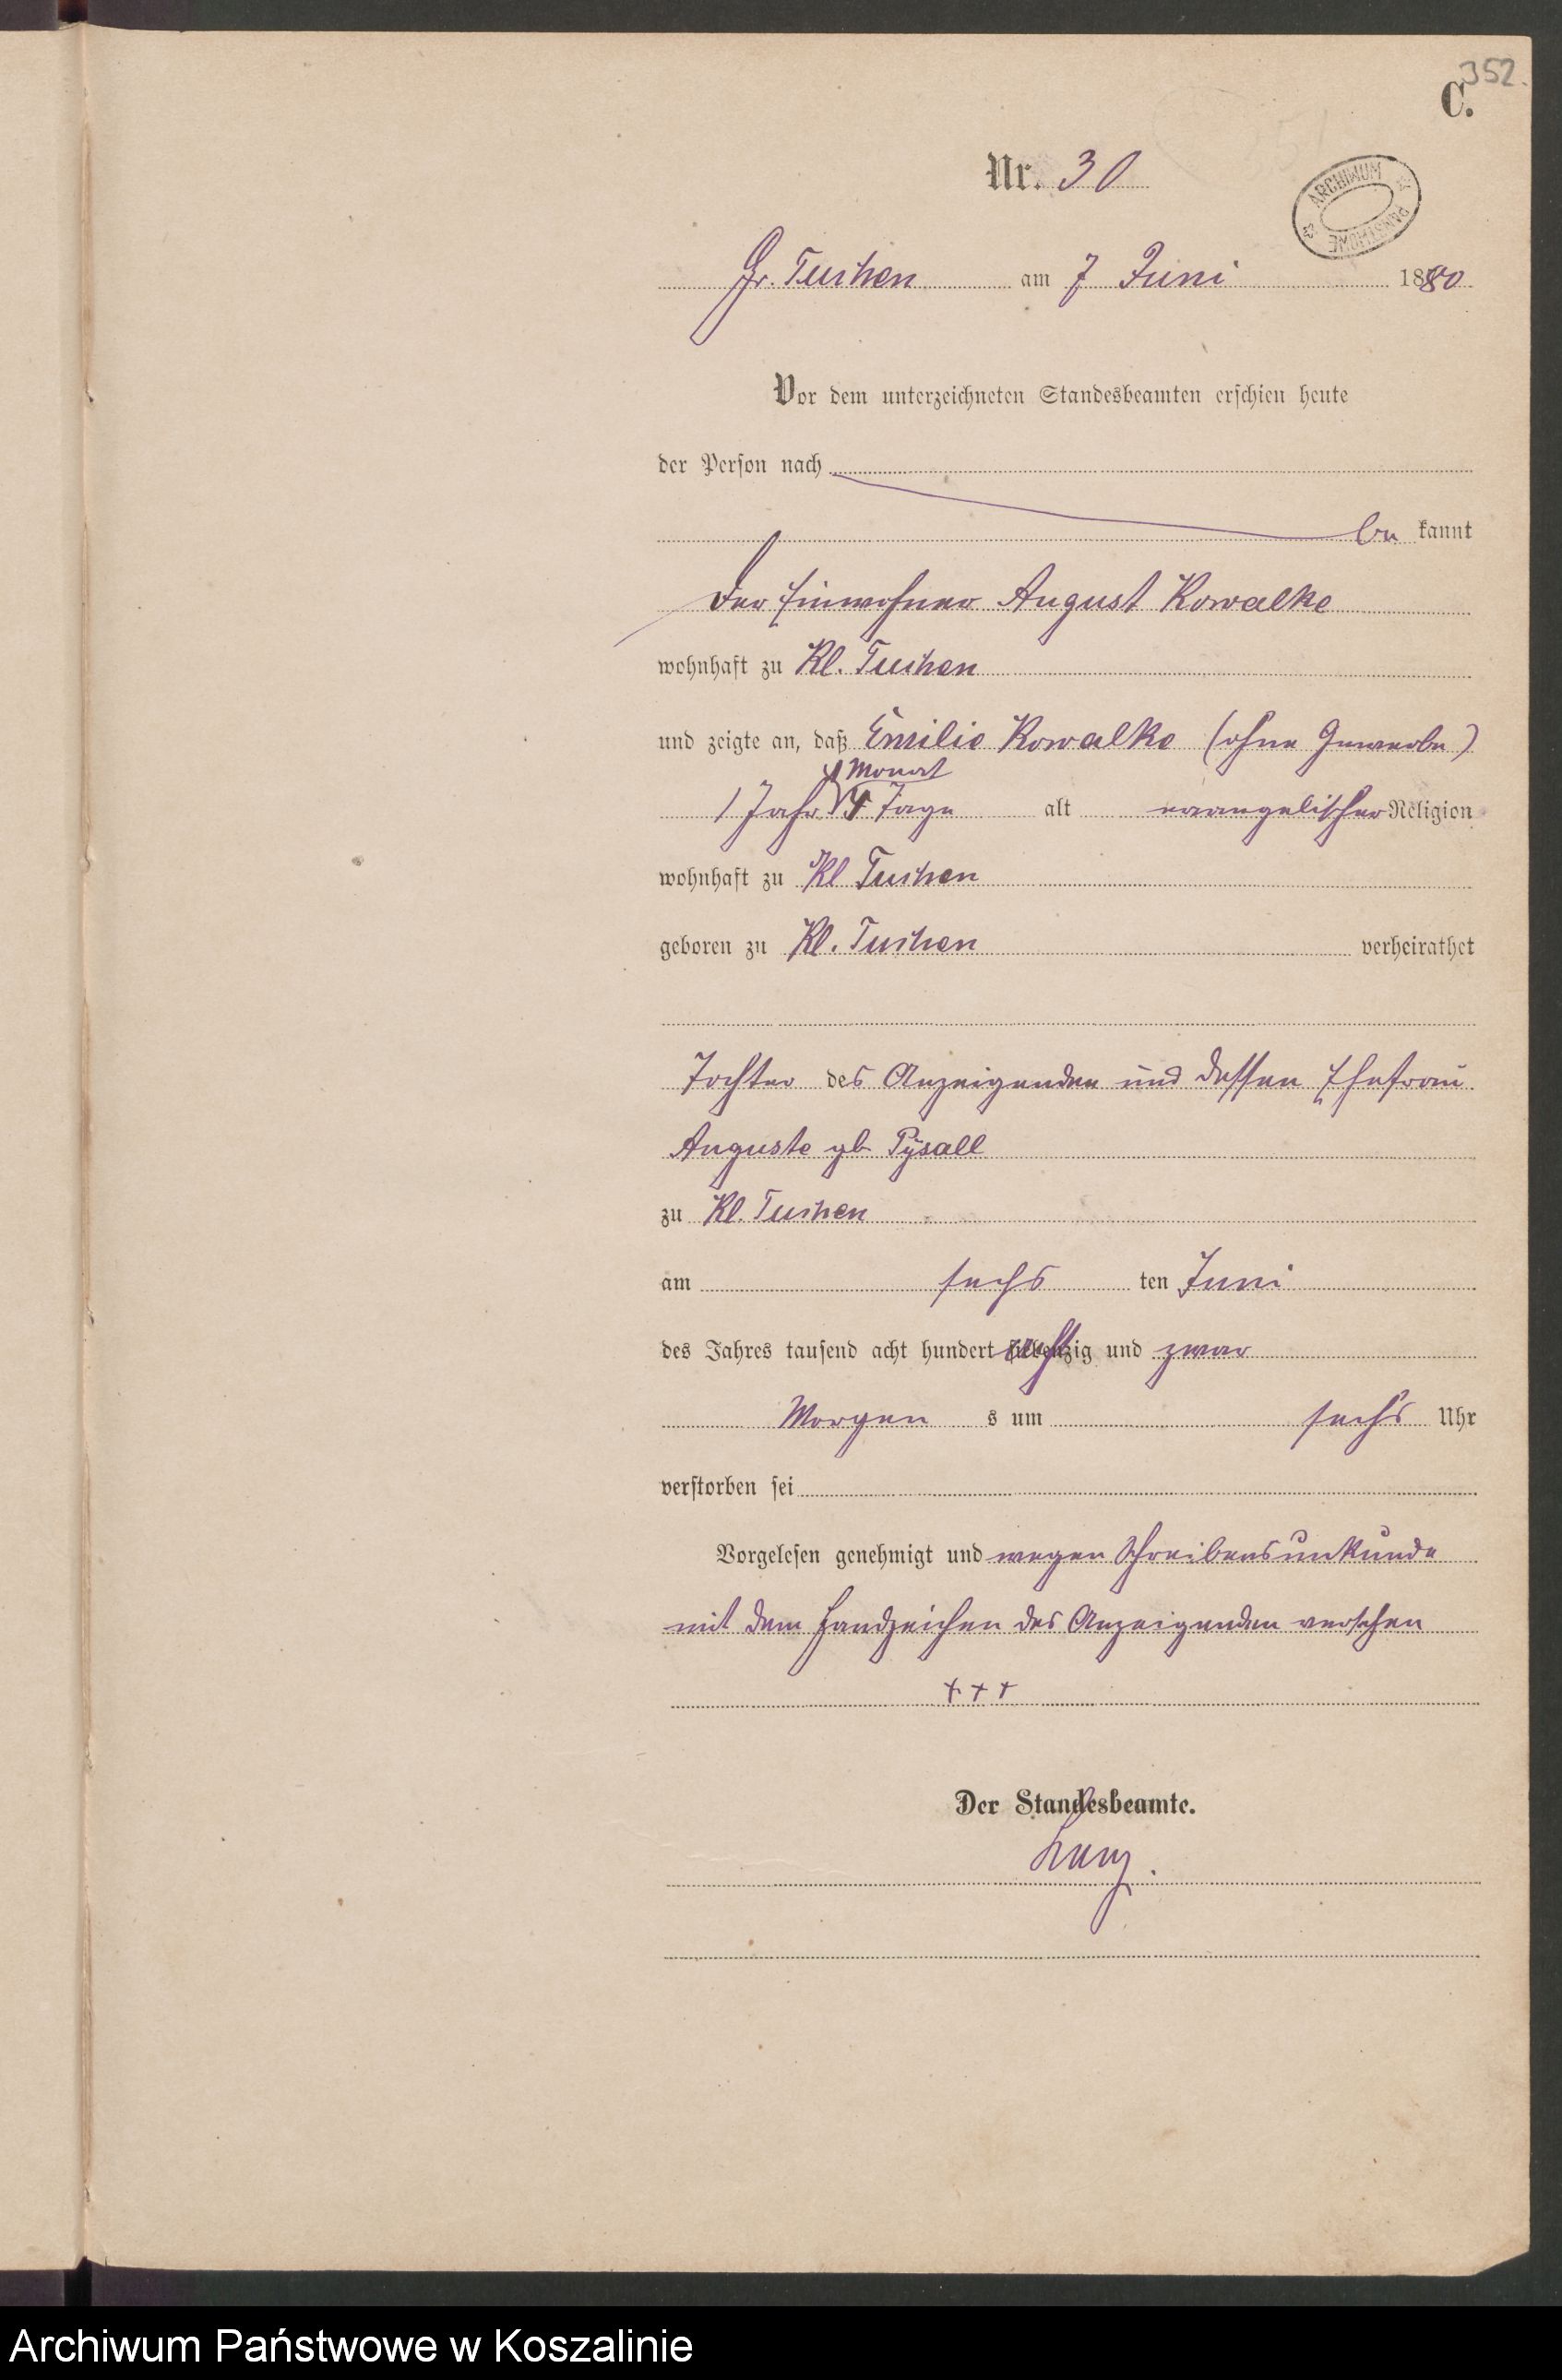 352.
C.
Nr. 30
ARCHIWUM PAŃSTWOWE
Gr. Tuchen am 7 Juni 1880
Vor dem unterzeichneten Standesbeamten erschien heute
der Person nach
be kannt
der Einwohner August Kowalke
wohnhaft zu Kl. Tuchen
und zeigte an, daß Emilie Kowalke (ohne Gewerbe)
1 Monat
1 Jahr 4 Tage alt evangelischer Religion
wohnhaft zu Kl Tuchen
geboren zu Kl. Tuchen verheirathet
Tochter des Anzeigenden und dessen Ehefrau
Auguste gb Pysall
zu Kl. Tuchen
am sechs ten Juni
des Jahres tausend acht hundert achtzig und zwar
Morgen s um sechs Uhr
verstorben sei
Vorgelesen genehmigt und wegen Schreibensunkunde
mit dem Handzeichen des Anzeigenden versehen
+++
Der Standesbeamte.
Archiwum Państwowe w Koszalinie